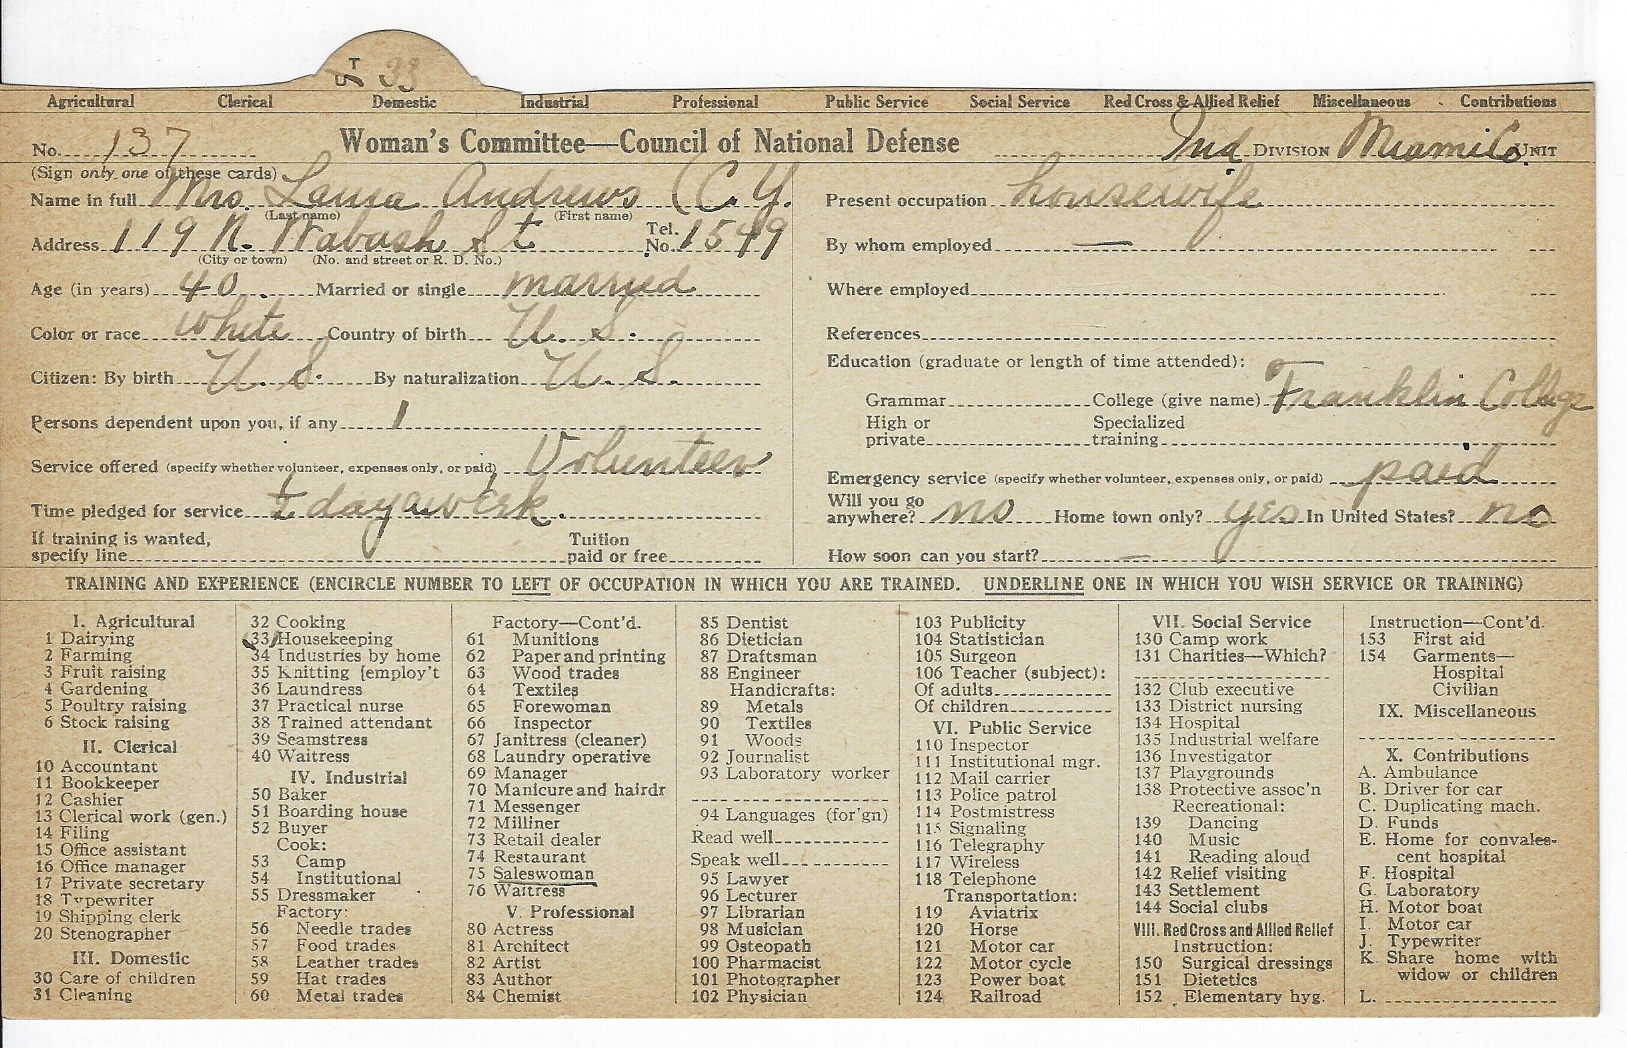 T
5 33
Agricultural Clerical Domestic Industrial Professional Public Service Social Service Red Cross & Allied Relief Miscellaneous Contributions
No. 137 Woman's Committee—Council of National Defense Ind. DIVISION Miami Co. UNIT
(Sign only one of these cards)
Name in full Mrs. Laura Andrews (C. Y.
(Last name) (First name)
Address 119 N. Wabash St Tel. No. 1549
(City or town) (No. and street or R. D. No.)
Age (in years) 40 Married or single married
Color or race white Country of birth U. S.
Citizen: By birth U. S. By naturalization U. S.
Persons dependent upon you, if any 1
Service offered (specify whether volunteer, expenses only, or paid) Volunteer
Time pledged for service ½ day a week.
If training is wanted, specify line Tuition paid or free
Present occupation housewife
By whom employed —
Where employed
References
Education (graduate or length of time attended):
Grammar College (give name) Franklin College
High or private Specialized training
Emergency service (specify whether volunteer, expenses only, or paid) paid
Will you go anywhere? no Home town only? yes In United States? no
How soon can you start? —
TRAINING AND EXPERIENCE (ENCIRCLE NUMBER TO LEFT OF OCCUPATION IN WHICH YOU ARE TRAINED. UNDERLINE ONE IN WHICH YOU WISH SERVICE OR TRAINING)
I. Agricultural
1 Dairying
2 Farming
3 Fruit raising
4 Gardening
5 Poultry raising
6 Stock raising
II. Clerical
10 Accountant
11 Bookkeeper
12 Cashier
13 Clerical work (gen.)
14 Filing
15 Office assistant
16 Office manager
17 Private secretary
18 Typewriter
19 Shipping clerk
20 Stenographer
III. Domestic
30 Care of children
31 Cleaning
32 Cooking
33 Housekeeping
34 Industries by home
35 Knitting [employ't
36 Laundress
37 Practical nurse
38 Trained attendant
39 Seamstress
40 Waitress
IV. Industrial
50 Baker
51 Boarding house
52 Buyer
Cook:
53 Camp
54 Institutional
55 Dressmaker
Factory:
56 Needle trades
57 Food trades
58 Leather trades
59 Hat trades
60 Metal trades
Factory—Cont'd.
61 Munitions
62 Paper and printing
63 Wood trades
64 Textiles
65 Forewoman
66 Inspector
67 Janitress (cleaner)
68 Laundry operative
69 Manager
70 Manicure and hairdr
71 Messenger
72 Milliner
73 Retail dealer
74 Restaurant
75 Saleswoman
76 Waitress
V. Professional
80 Actress
81 Architect
82 Artist
83 Author
84 Chemist
85 Dentist
86 Dietician
87 Draftsman
88 Engineer
Handicrafts:
89 Metals
90 Textiles
91 Woods
92 Journalist
93 Laboratory worker
94 Languages (for'gn)
Read well
Speak well
95 Lawyer
96 Lecturer
97 Librarian
98 Musician
99 Osteopath
100 Pharmacist
101 Photographer
102 Physician
103 Publicity
104 Statistician
105 Surgeon
106 Teacher (subject):
Of adults
Of children
VI. Public Service
110 Inspector
111 Institutional mgr.
112 Mail carrier
113 Police patrol
114 Postmistress
115 Signaling
116 Telegraphy
117 Wireless
118 Telephone
Transportation:
119 Aviatrix
120 Horse
121 Motor car
122 Motor cycle
123 Power boat
124 Railroad
VII. Social Service
130 Camp work
131 Charities—Which?
132 Club executive
133 District nursing
134 Hospital
135 Industrial welfare
136 Investigator
137 Playgrounds
138 Protective assoc'n
Recreational:
139 Dancing
140 Music
141 Reading aloud
142 Relief visiting
143 Settlement
144 Social clubs
VIII. Red Cross and Allied Relief
Instruction:
150 Surgical dressings
151 Dietetics
152 Elementary hyg.
Instruction—Cont'd.
153 First aid
154 Garments—
Hospital
Civilian
IX. Miscellaneous
X. Contributions
A. Ambulance
B. Driver for car
C. Duplicating mach.
D. Funds
E. Home for convales-
cent hospital
F. Hospital
G. Laboratory
H. Motor boat
I. Motor car
J. Typewriter
K. Share home with
widow or children
L.